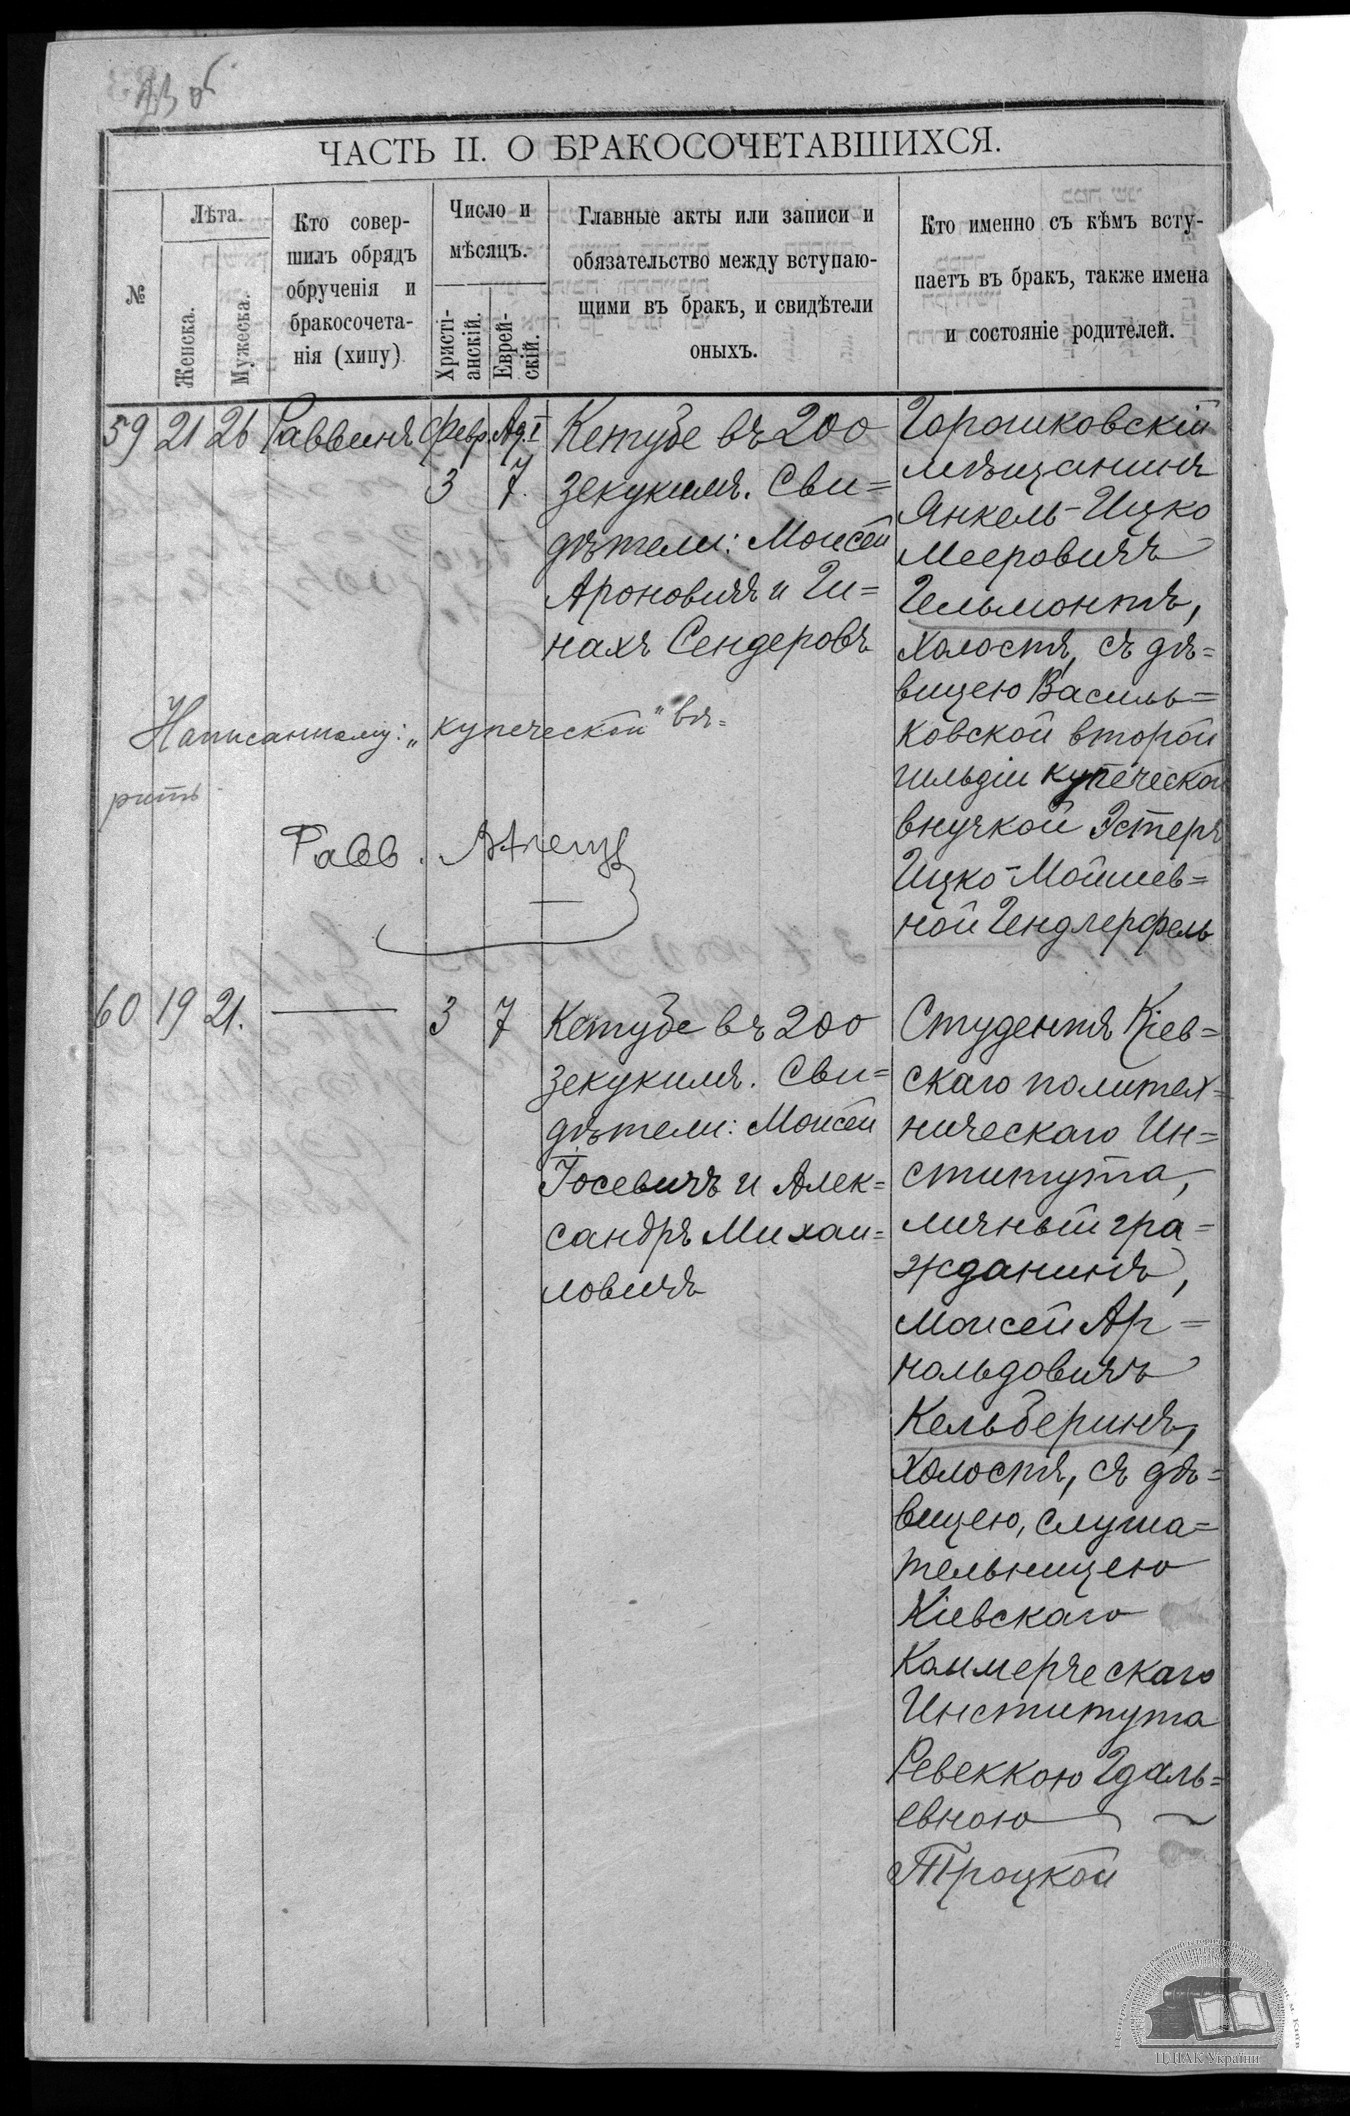 ЧАСТЬ II. О БРАКОСОЧЕТАВШИХСЯ.
№
Лѣта.
Женска.
Мужеска.
Кто совер-
шилъ обрядъ
обрученія и
бракосочета-
нія (хипу)
Число и
мѣсяцъ.
Христі-
анскій.
Еврей-
скій.
Главные акты или записи и
обязательство между вступаю-
щими въ бракъ, и свидѣтели
оныхъ.
Кто именно съ кѣмъ всту-
паетъ въ бракъ, также имена
и состояніе родителей.
59 21 26 Раввинъ Февр. Ад. I
3 7.
Кетубе въ 200
зекукимъ. Сви=
дѣтели: Моисей
Ароновичъ и Пи=
нахъ Сендеровъ
Горошковскій
мѣщанинъ
Янкель-Ицко
Мееровичъ
Гельмонтъ,
холостъ, съ дѣ=
вицею Василь=
ковской второй
гильдіи купеческой
внучкой Эстеръ
Ицко-Мошиев=
ной Гендлерфель
Написанному: „купеческой" вѣ=
рить
Равв.
60 19 21. —— 3 7
Кетубе въ 200
зекукимъ. Сви=
дѣтели: Моисей
Іосевичъ и Алек=
сандръ Михаи=
ловичъ
Студентъ Кіев=
скаго политех=
ническаго Ин=
ститута,
личный гра=
жданинъ,
Моисей Ар=
нольдовичъ
Кельберинъ,
холостъ, съ дѣ=
вицею, слуша=
тельницею
Кіевскаго
Коммерческаго
Института
Ревеккою Гдаль=
евною
Троцкой
ЦДІАК України